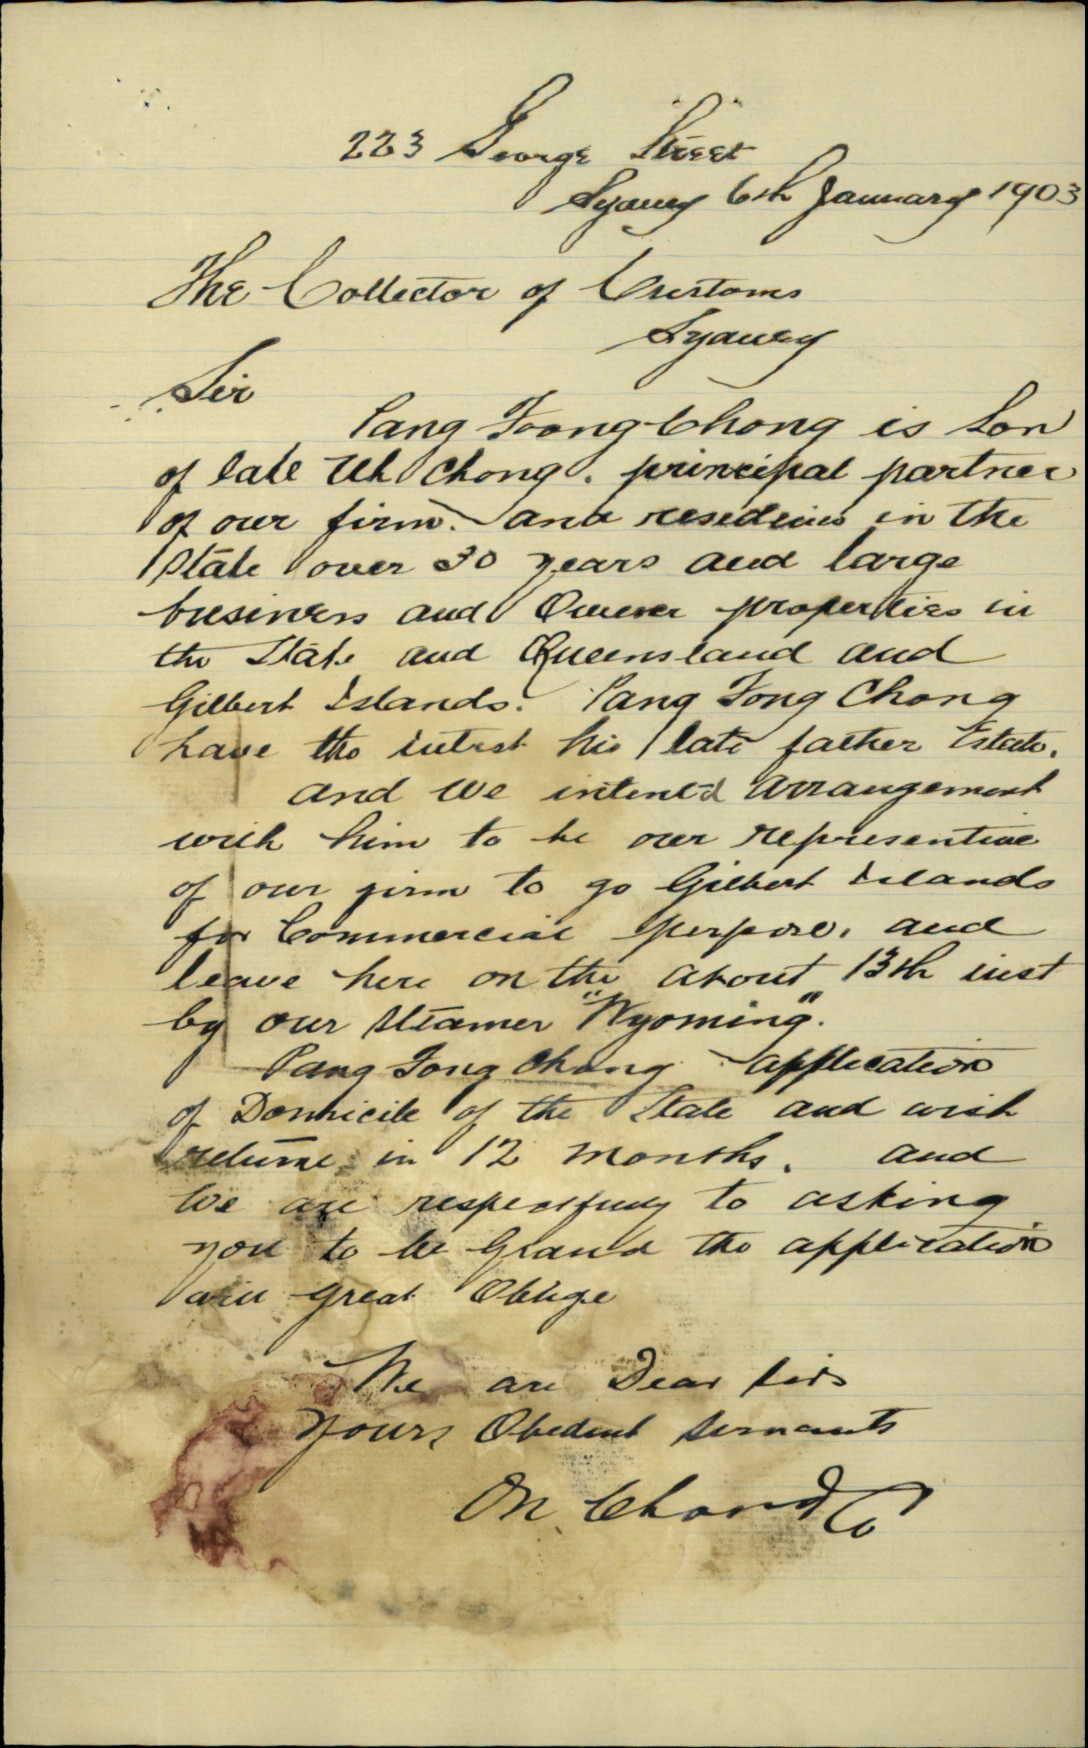 223 George Street
Sydney 6th January 1903
The Collector of Customs
Sydney
Sir
Pang Foong Chong is Son
of late Uh Chong. principal partner
of our firm. and resedeines in the
State over 30 years and large
business and Owner properties in
the State and Queensland and
Gilbert Islands. Pang Fong Chong
have the intrest his late father Estate.
and we intend arrangement
with him to be our representive
of our firm to go Gilbert Islands
for Commercial perpose. and
leave here on the about 13th inst
by our Steamer "Wyoming".
Pang Fong Chong application
of Domicile of the State and wish
returne in 12 months. and
We are respectfully to asking
you to be Grand the application
will great Oblige
We are Dear Sirs
Yours Obedent Servants
On Chong & Co